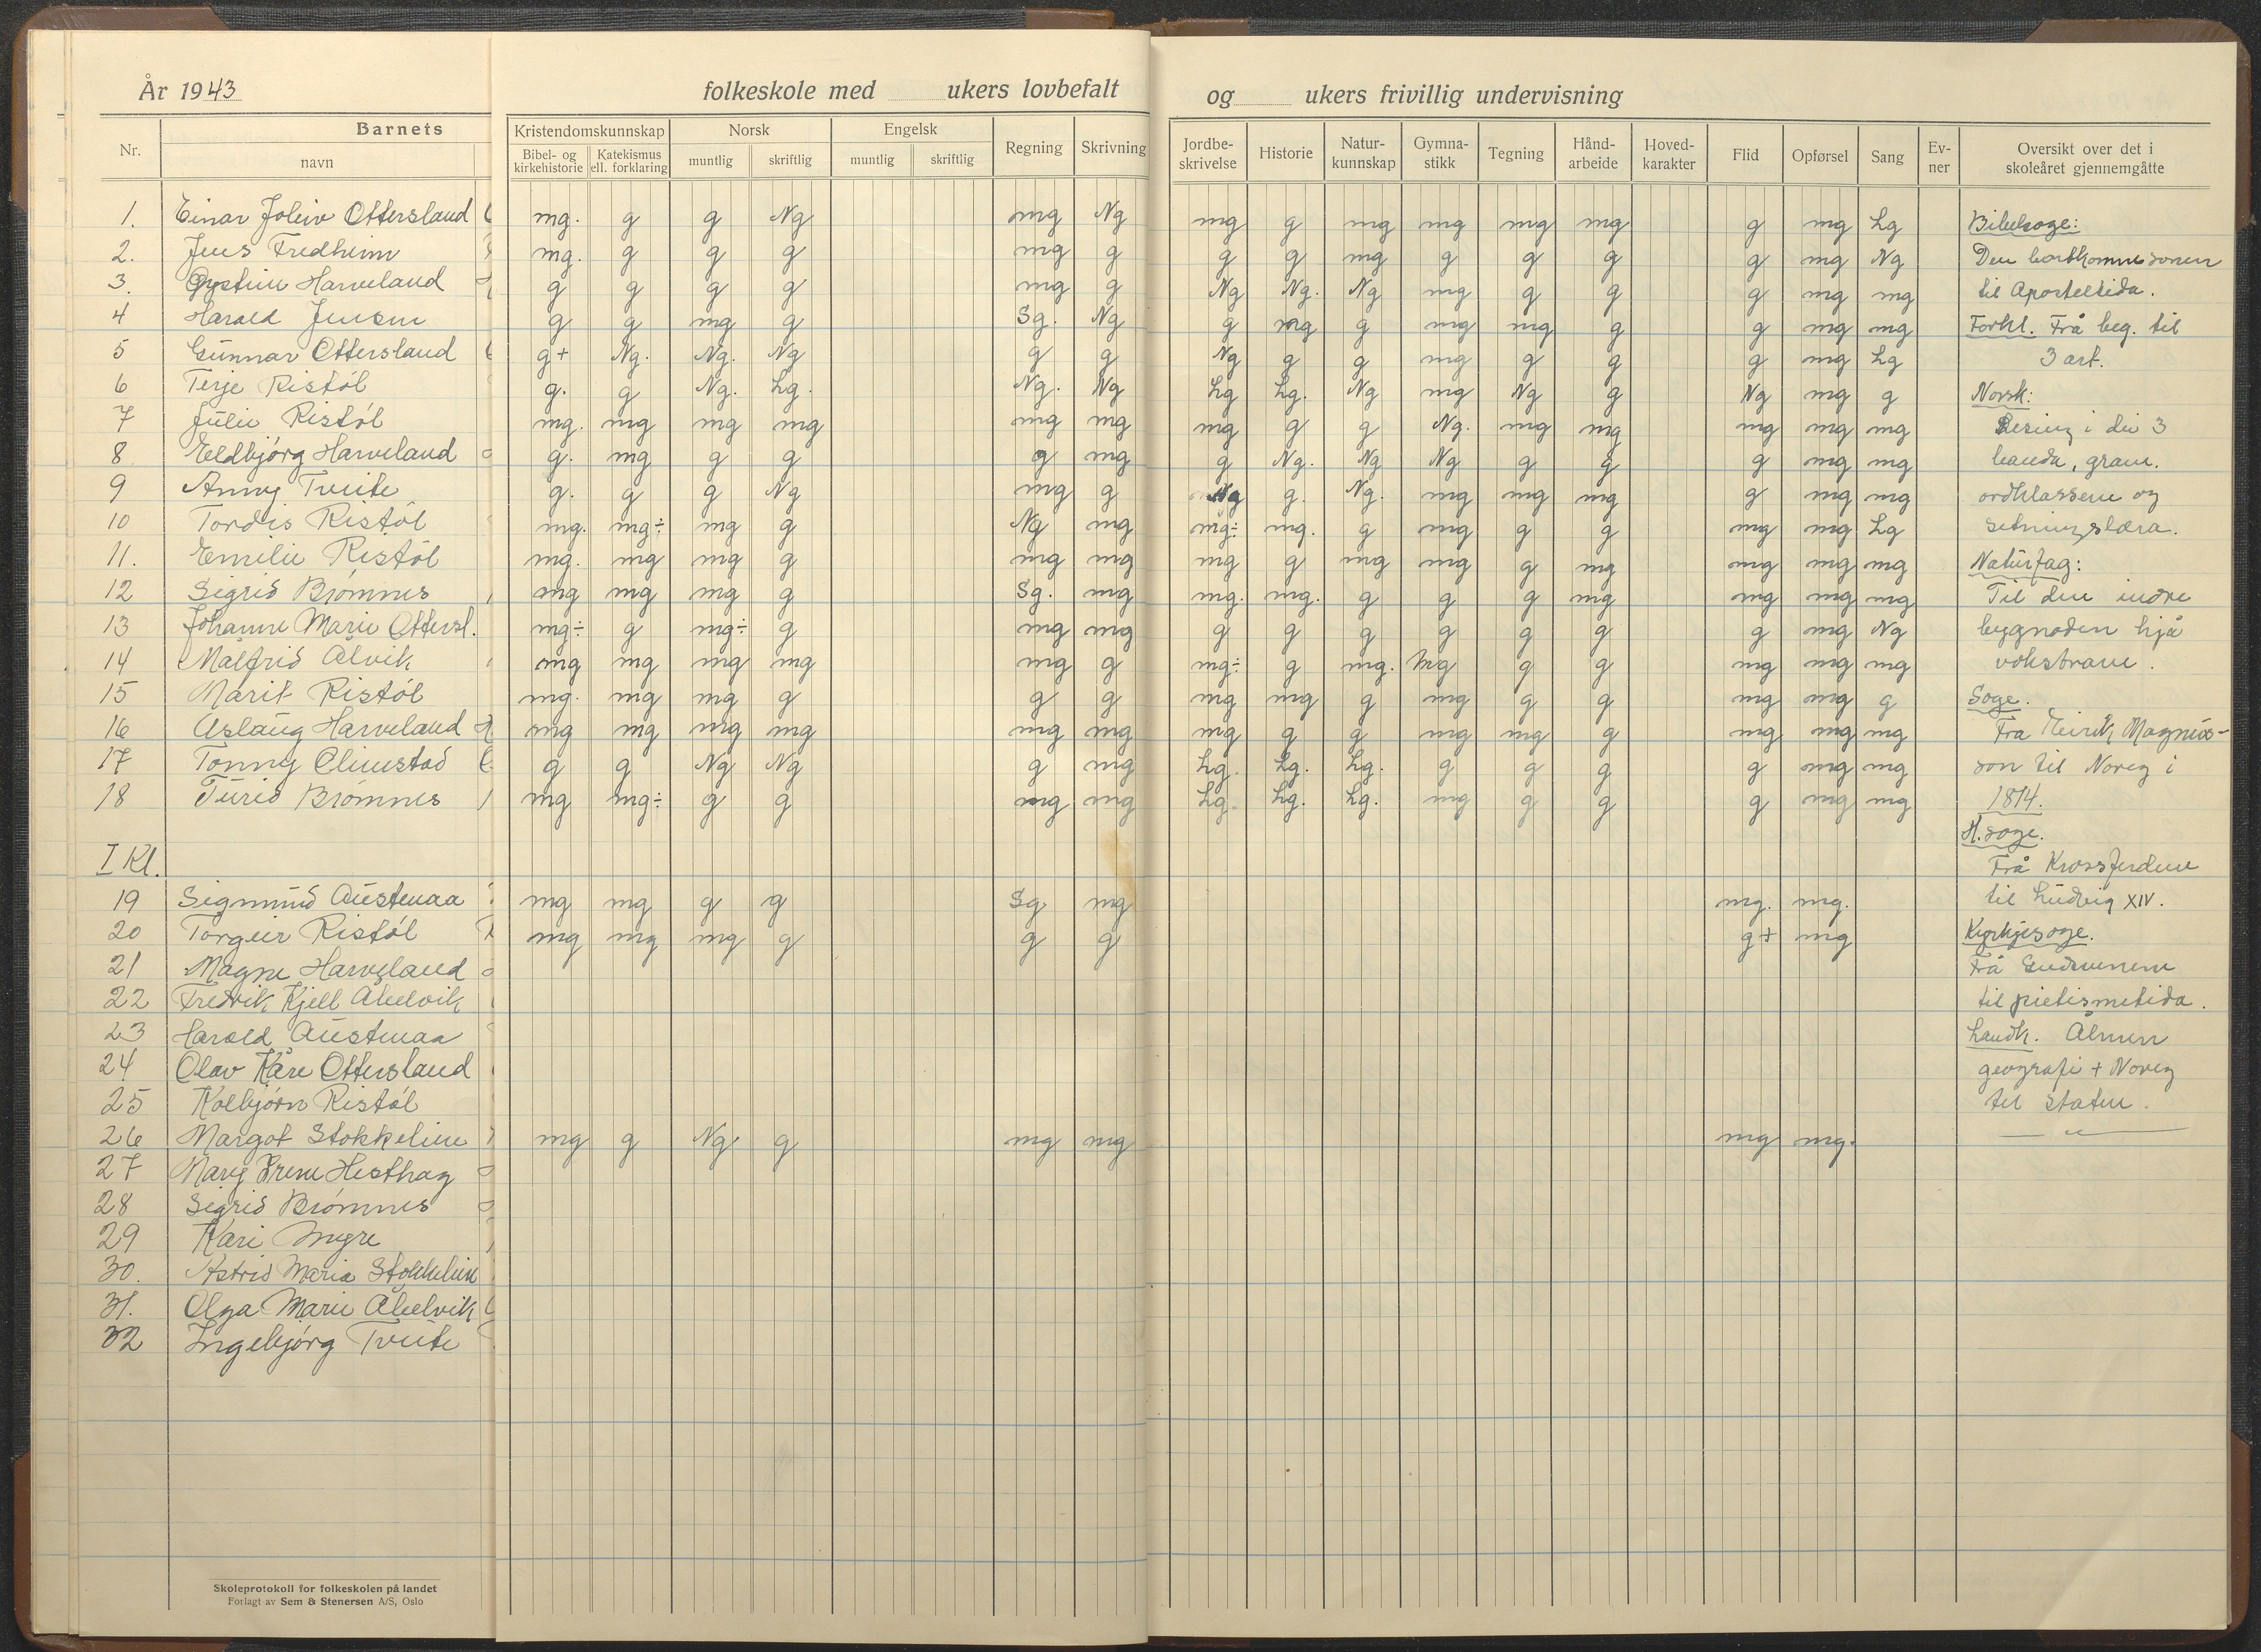 År 1943 folkeskole med ukers lovbefalt og ukers frivillig undervisning
Nr. Barnets navn Kristendomskunnskap Bibel- og kirkehistorie Katekismus ell. forklaring Norsk muntlig skriftlig Engelsk muntlig skriftlig Regning Skrivning Jordbe-skrivelse Historie Natur-kunnskap Gymna-stikk Tegning Hånd-arbeide Hoved-karakter Flid Opførsel Sang Ev-ner Oversikt over det i skoleåret gjennemgåtte
1. Einar Joleiv Ottersland mg. g g Ng mg Ng mg g mg mg mg mg g mg Lg Bibelsoge:
2. Jens Fredheim mg. g g g mg g g g mg g g g g mg Ng Den bortkomne sonen
3. Øystein Harveland g g g g mg g Ng Ng. Ng mg g g g mg mg til Aposteltida.
4 Harald Jensen g g mg g Sg. Ng g mg g mg mg g g mg mg Forkl. Frå beg. til
5 Gunnar Ottersland g+ Ng. Ng. Ng g g Ng g g mg g g g mg Lg 3 art.
6 Terje Ristøl g. g Ng. Lg. Ng. Ng Lg Lg. Ng mg Ng g Ng mg g Norsk:
7 Julie Ristøl mg. mg mg mg mg mg mg g g Ng. mg mg mg mg mg Lesing i dei 3
8 Eldbjørg Harveland g. mg g g g mg g Ng. Ng Ng g g g mg mg banda, gram.
9 Anny Tveite g. g g Ng mg g Ng g. Ng. mg mg mg g mg mg ordklassene og
10 Tordis Ristøl mg. mg÷ mg g Ng mg mg÷ mg. g mg g g mg mg Lg setningslæra.
11. Emilie Ristøl mg. mg mg g mg mg mg g mg mg g mg mg mg mg Naturfag:
12 Sigrid Brømnes mg mg mg g Sg. mg mg. mg. g g g mg mg mg mg Til den indre
13 Johanne Marie Ottersl. mg÷ g mg÷ g mg mg g g g g g g g mg Ng bygnaden hjå
14 Målfrid Ålvik mg mg mg mg mg g mg÷ g mg. mg g g mg mg mg vokstrane.
15 Marit Ristøl mg. mg mg g g g mg mg g mg g g mg mg g Soge.
16 Aslaug Harveland mg mg mg mg mg mg mg g g mg mg g mg mg mg Frå Eirik Magnus-
17 Tonny Olimstad g g Ng Ng g mg Lg. Lg. Lg. g g g g mg mg son til Noreg i
18 Turid Brømnes mg mg÷ g g mg mg Lg. Lg. Lg. mg g g g mg mg 1814.
H.soge.
I Kl. Frå Krossferdene
19 Sigmund Austenaa mg mg g g Sg mg mg. mg. til Ludvig XIV.
20 Torgeir Ristøl mg mg mg g g g g+ mg Kyrkjesoge.
21 Magne Harveland Frå Gudsvenene
22 Fredrik Kjell Åbelvik til pietismetida.
23 Harald Austenaa Landk. Ålmen
24 Olav Kåre Ottersland geografi + Noreg
25 Kolbjørn Ristøl til staten.
26 Margot Stokkelien mg g Ng g mg mg mg mg.
27 Mary Irene Hesthag
28 Sigrid Brømnes
29 Kari Myre
30. Astrid Maria Stokkelien
31. Olga Marie Åbelvik
32 Ingebjørg Tveite
Skoleprotokoll for folkeskolen på landet
Forlagt av Sem & Stenersen A/S, Oslo